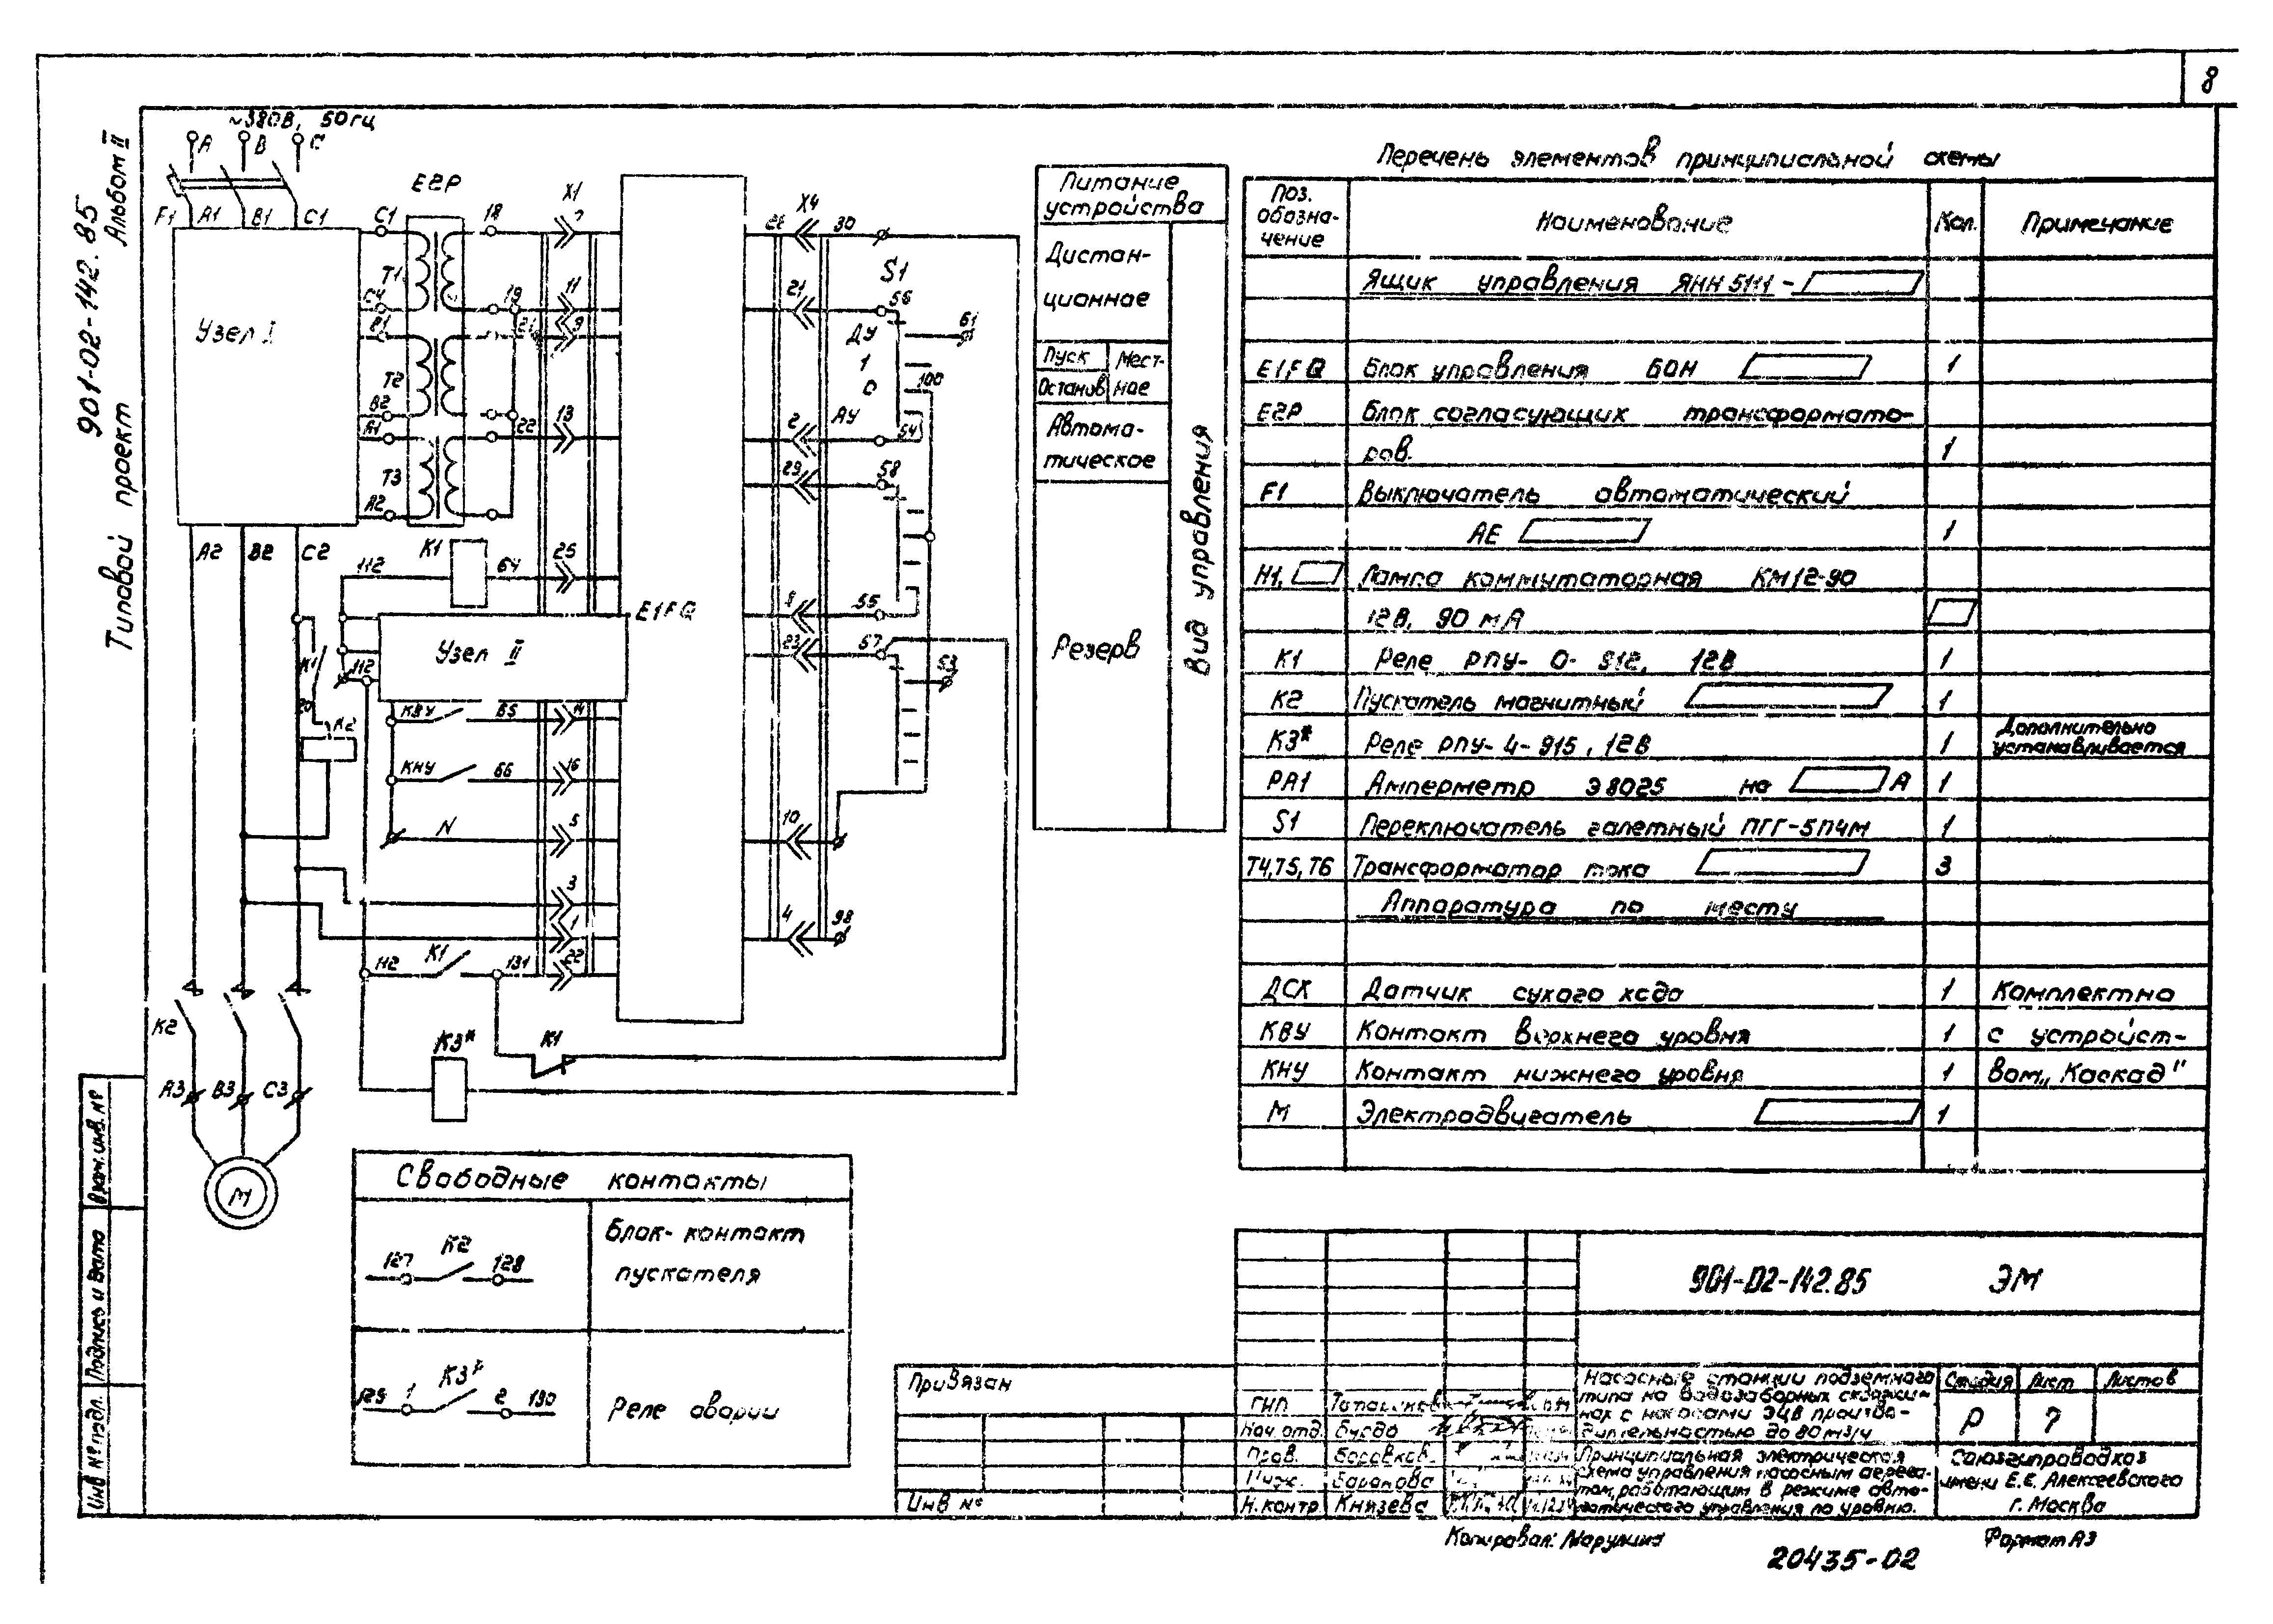 8
Типовой проект 901-02-142.85 Альбом II
~380В, 50гц
A B C
F1 A1 B1 C1
Узел I
A2 B2 C2
E2P
C1
T1
C4
B1
T2
B2
A1
T3
A2
18
19
21
22
X1
7
11
9
13
25
K1
112
64
E1FQ
Узел II
K1
112
20
K2
КВУ 65 14
КНУ 66 16
N 5
3
1
112 K1 131 22
K1
K3*
K2
A3 B3 C3
M
X4
26 30
21 56
2 54
29 58
8 55
23 57
10
4 98
S1
ДУ
1
0
АУ
61
100
53
Питание
устройства
Дистан-
ционное
Пуск
Останов
Мест-
ное
Автома-
тическое
Резерв
Вид управления
Свободные контакты
127 K2 128
Блок-контакт
пускателя
129 1 K3* 2 130
Реле аварии
Перечень элементов принципиальной схемы
Поз. обозна-чение Наименование Кол. Примечание
Ящик управления ЯНН 5111-
E1FQ Блок управления БОН 1
E2P Блок согласующих трансформато-
ров. 1
F1 Выключатель автоматический
АЕ 1
H1, Лампа коммутаторная КМ12-90
12В, 90 мА
K1 Реле РПУ-0-912, 12В 1
K2 Пускатель магнитный 1
K3* Реле РПУ-4-915, 12В 1 Дополнительно устанавливается
PA1 Амперметр Э8025 на А 1
S1 Переключатель галетный ПГГ-5П4М 1
T4,T5,T6 Трансформатор тока 3
Аппаратура по месту
ДСХ Датчик сухого хода 1 Комплектно
КВУ Контакт верхнего уровня 1 с устройст-
КНУ Контакт нижнего уровня 1 вом „Каскад"
M Электродвигатель 1
901-02-142.85 ЭМ
Привязан
Инв №
ГИП
Нач. отд.
Пров.
Н.контр. Князева
Насосные станции подземного
типа на водозаборных скважи-
нах с насосами ЭЦВ произво-
дительностью до 80 м3/ч
Стадия Лист Листов
Р 7
Принципиальная электрическая
схема управления насосным агрега-
том, работающим в режиме авто-
матического управления по уровню.
Союзгипроводхоз
имени Е.Е. Алексеевского
г. Москва
Инв № подл. Подпись и дата Взам. инв. №
Копировал: Марунина
Формат А3
20435-02